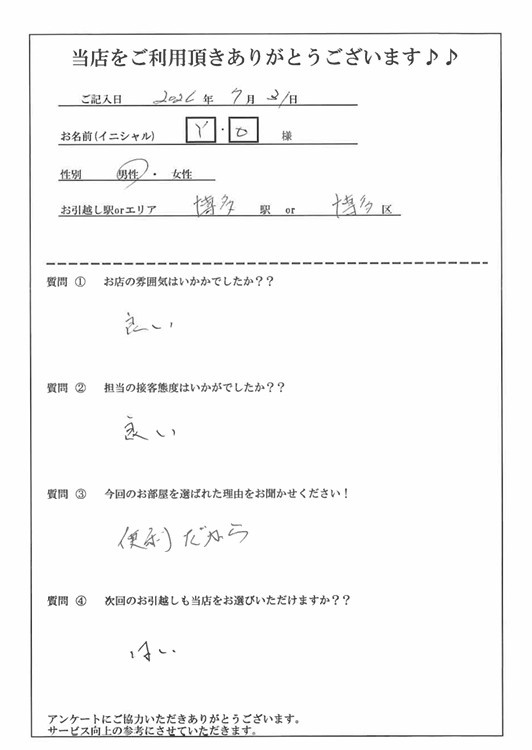 当店をご利用頂きありがとうございます♪♪
ご記入日 年 7 月 31 日
お名前(イニシャル) Y・O 様
性別 男性 ・ 女性
お引越し駅orエリア 博多 駅 or 博多 区
質問 ① お店の雰囲気はいかかでしたか??
良い
質問 ② 担当の接客態度はいかがでしたか??
良い
質問 ③ 今回のお部屋を選ばれた理由をお聞かせください!
便利だから
質問 ④ 次回のお引越しも当店をお選びいただけますか??
はい
アンケートにご協力いただきありがとうございます。
サービス向上の参考にさせていただきます。